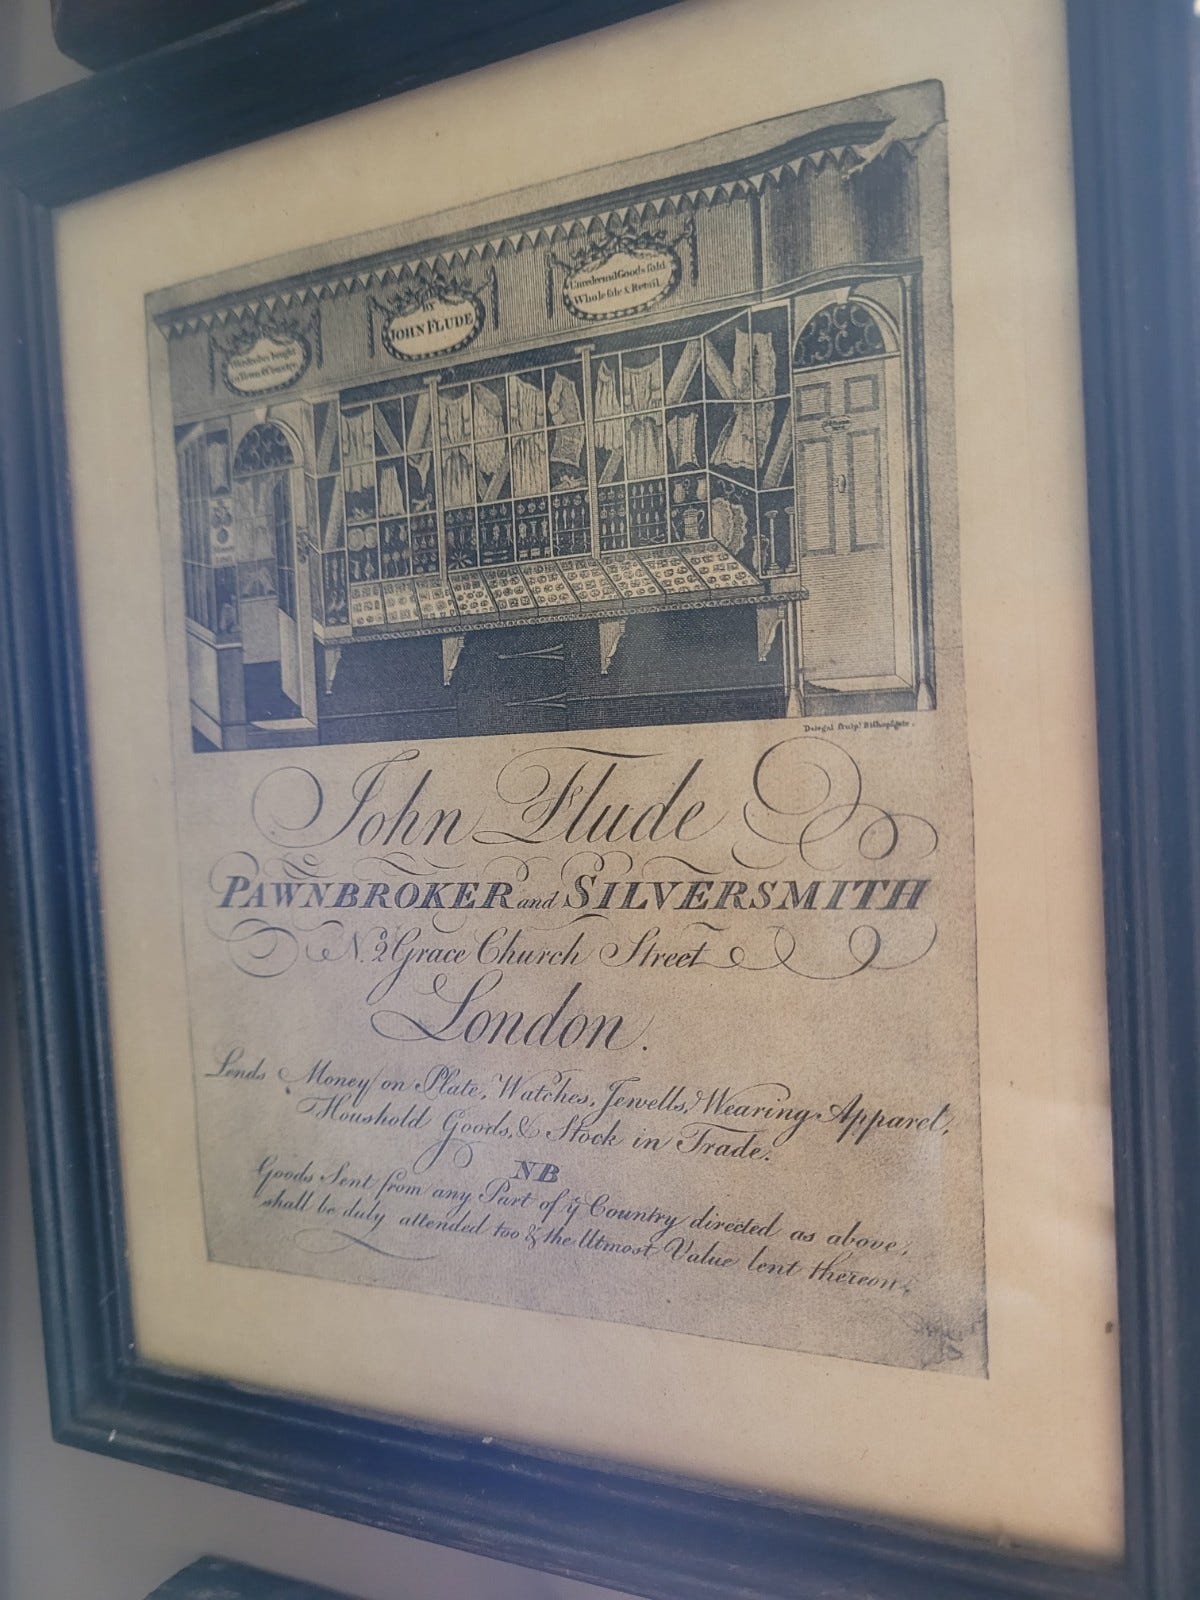 Wardrobes bought
in Town & Country
BY
JOHN FLUDE
Unredeemd Goods sold
Wholesale & Retail
sculpt. Bishopsgate.
John Flude
PAWNBROKER and SILVERSMITH
No. 2 Grace Church Street
London.
Lends Money on Plate, Watches, Jewells, Wearing Apparel,
Houshold Goods, & Stock in Trade.
NB
Goods Sent from any Part of ye Country directed as above,
shall be duly attended too & the Utmost Value lent thereon.